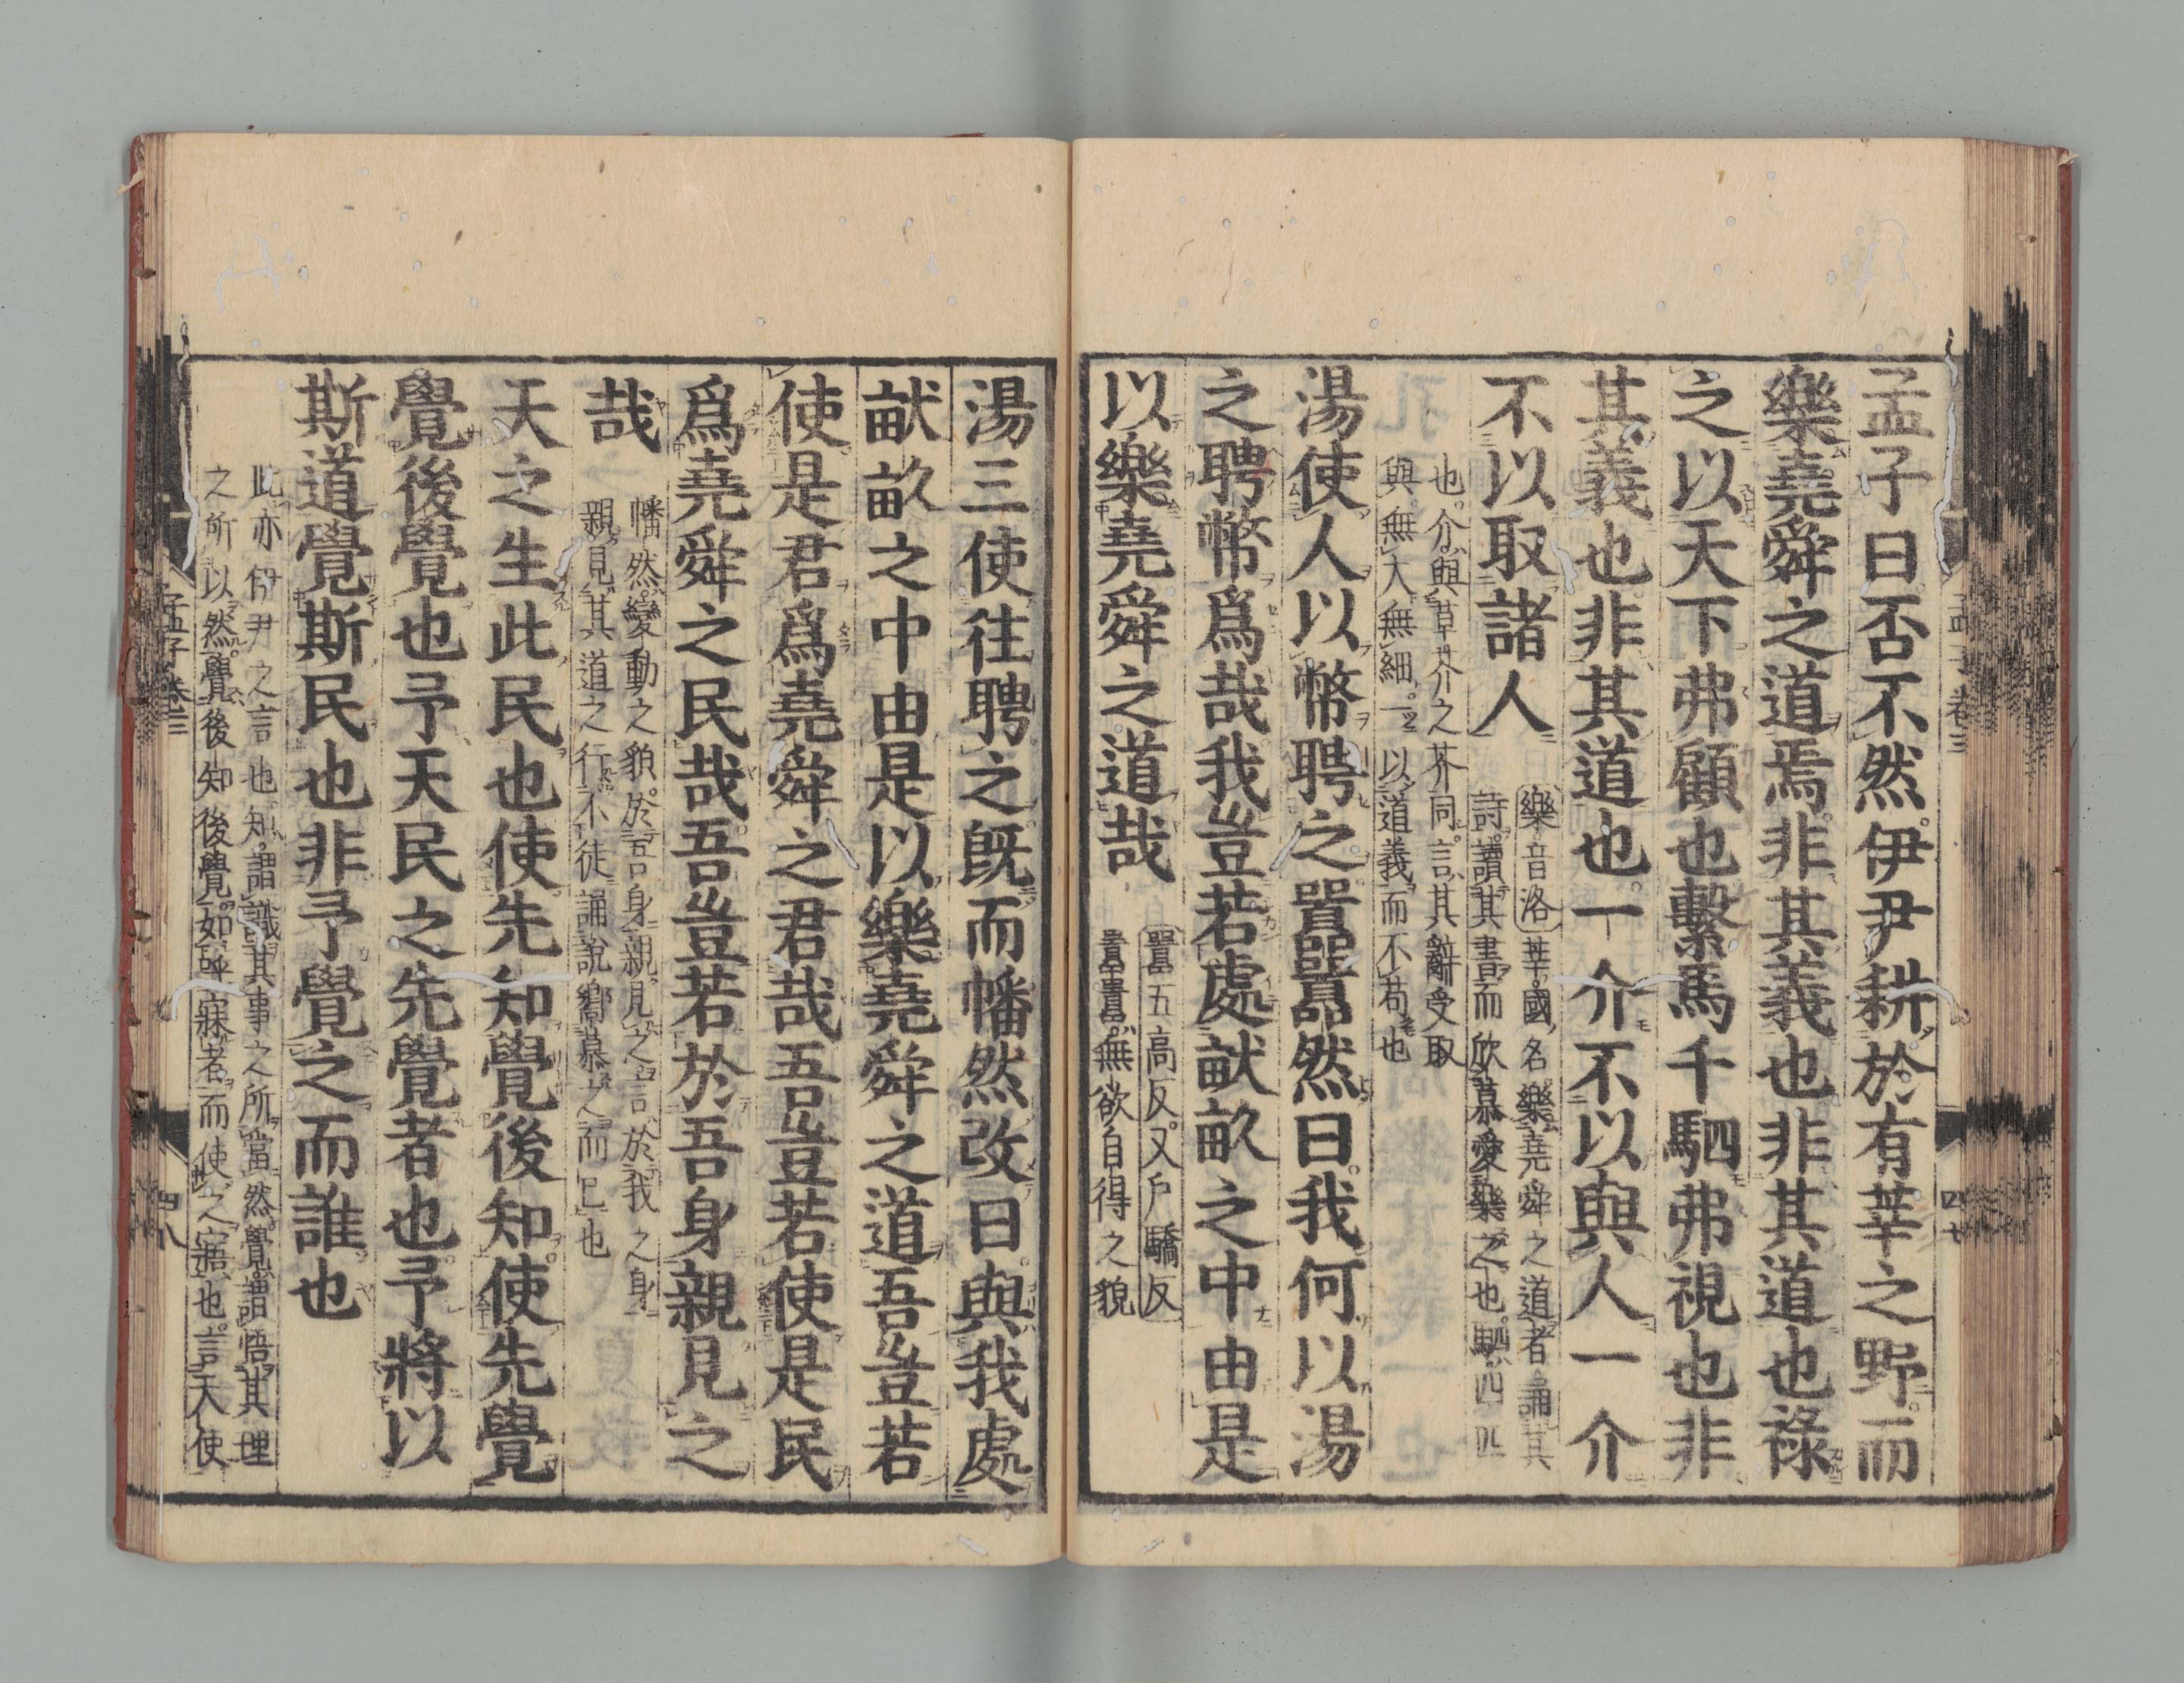 孟子曰否不然伊尹耕於有莘之野而
樂堯舜之道焉非其義也非其道也祿
之以天下弗顧也繫馬千駟弗視也非
其義也非其道也一介不以與人一介
不以取諸人
樂音洛莘國名樂堯舜之道者誦其
詩讀其書而欣慕愛樂之也駟四匹
也介與草芥之芥同言其辭受取
與無大無細一以道義而不苟也
湯使人以幣聘之囂囂然曰我何以湯
之聘幣爲哉我豈若處畎畝之中由是
以樂堯舜之道哉
囂五高反又戶驕反
囂囂無欲自得之貌
孟子卷三
四七
湯三使往聘之既而幡然改曰與我處
畎畝之中由是以樂堯舜之道吾豈若
使是君爲堯舜之君哉吾豈若使是民
爲堯舜之民哉吾豈若於吾身親見之
哉
幡然變動之貌於吾身親見之言於我之身
親見其道之行不徒誦說嚮慕之而已也
天之生此民也使先知覺後知使先覺
覺後覺也予天民之先覺者也予將以
斯道覺斯民也非予覺之而誰也
此亦伊尹之言也知謂識其事之所當然覺謂悟其理
之所以然覺後知後覺如呼寐者而使之寤也言天使
孟子卷三
四八